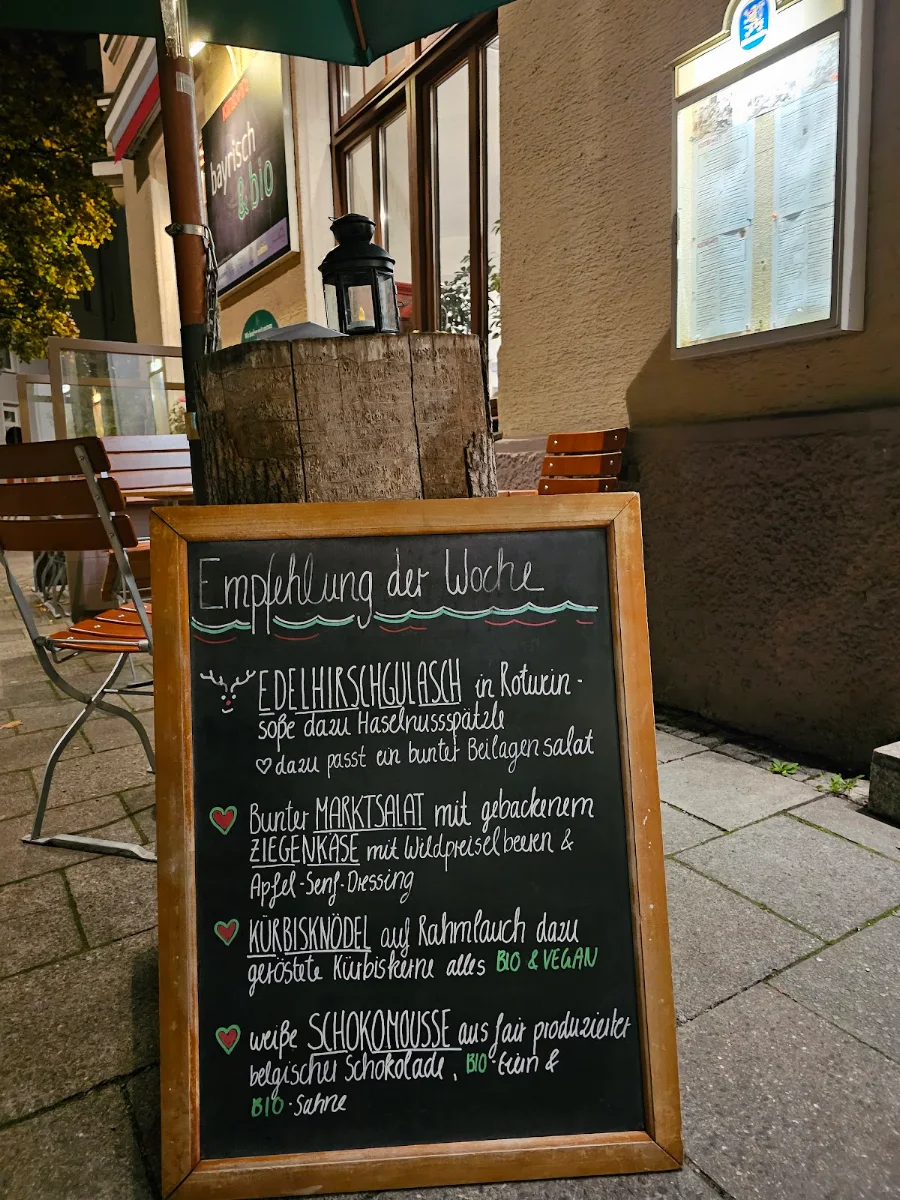 bayrisch
& bio
Empfehlung der Woche
EDELHIRSCHGULASCH in Rotwein-
soße dazu Haselnussspätzle
dazu passt ein bunter Beilagensalat
Bunter MARKTSALAT mit gebackenem
ZIEGENKÄSE mit Wildpreiselbeeren &
Apfel-Senf-Dressing
KÜRBISKNÖDEL auf Rahmlauch dazu
geröstete Kürbiskerne alles BIO & VEGAN
weiße SCHOKOMOUSSE aus fair produzierter
belgischer Schokolade, BIO-Eiern &
BIO-Sahne